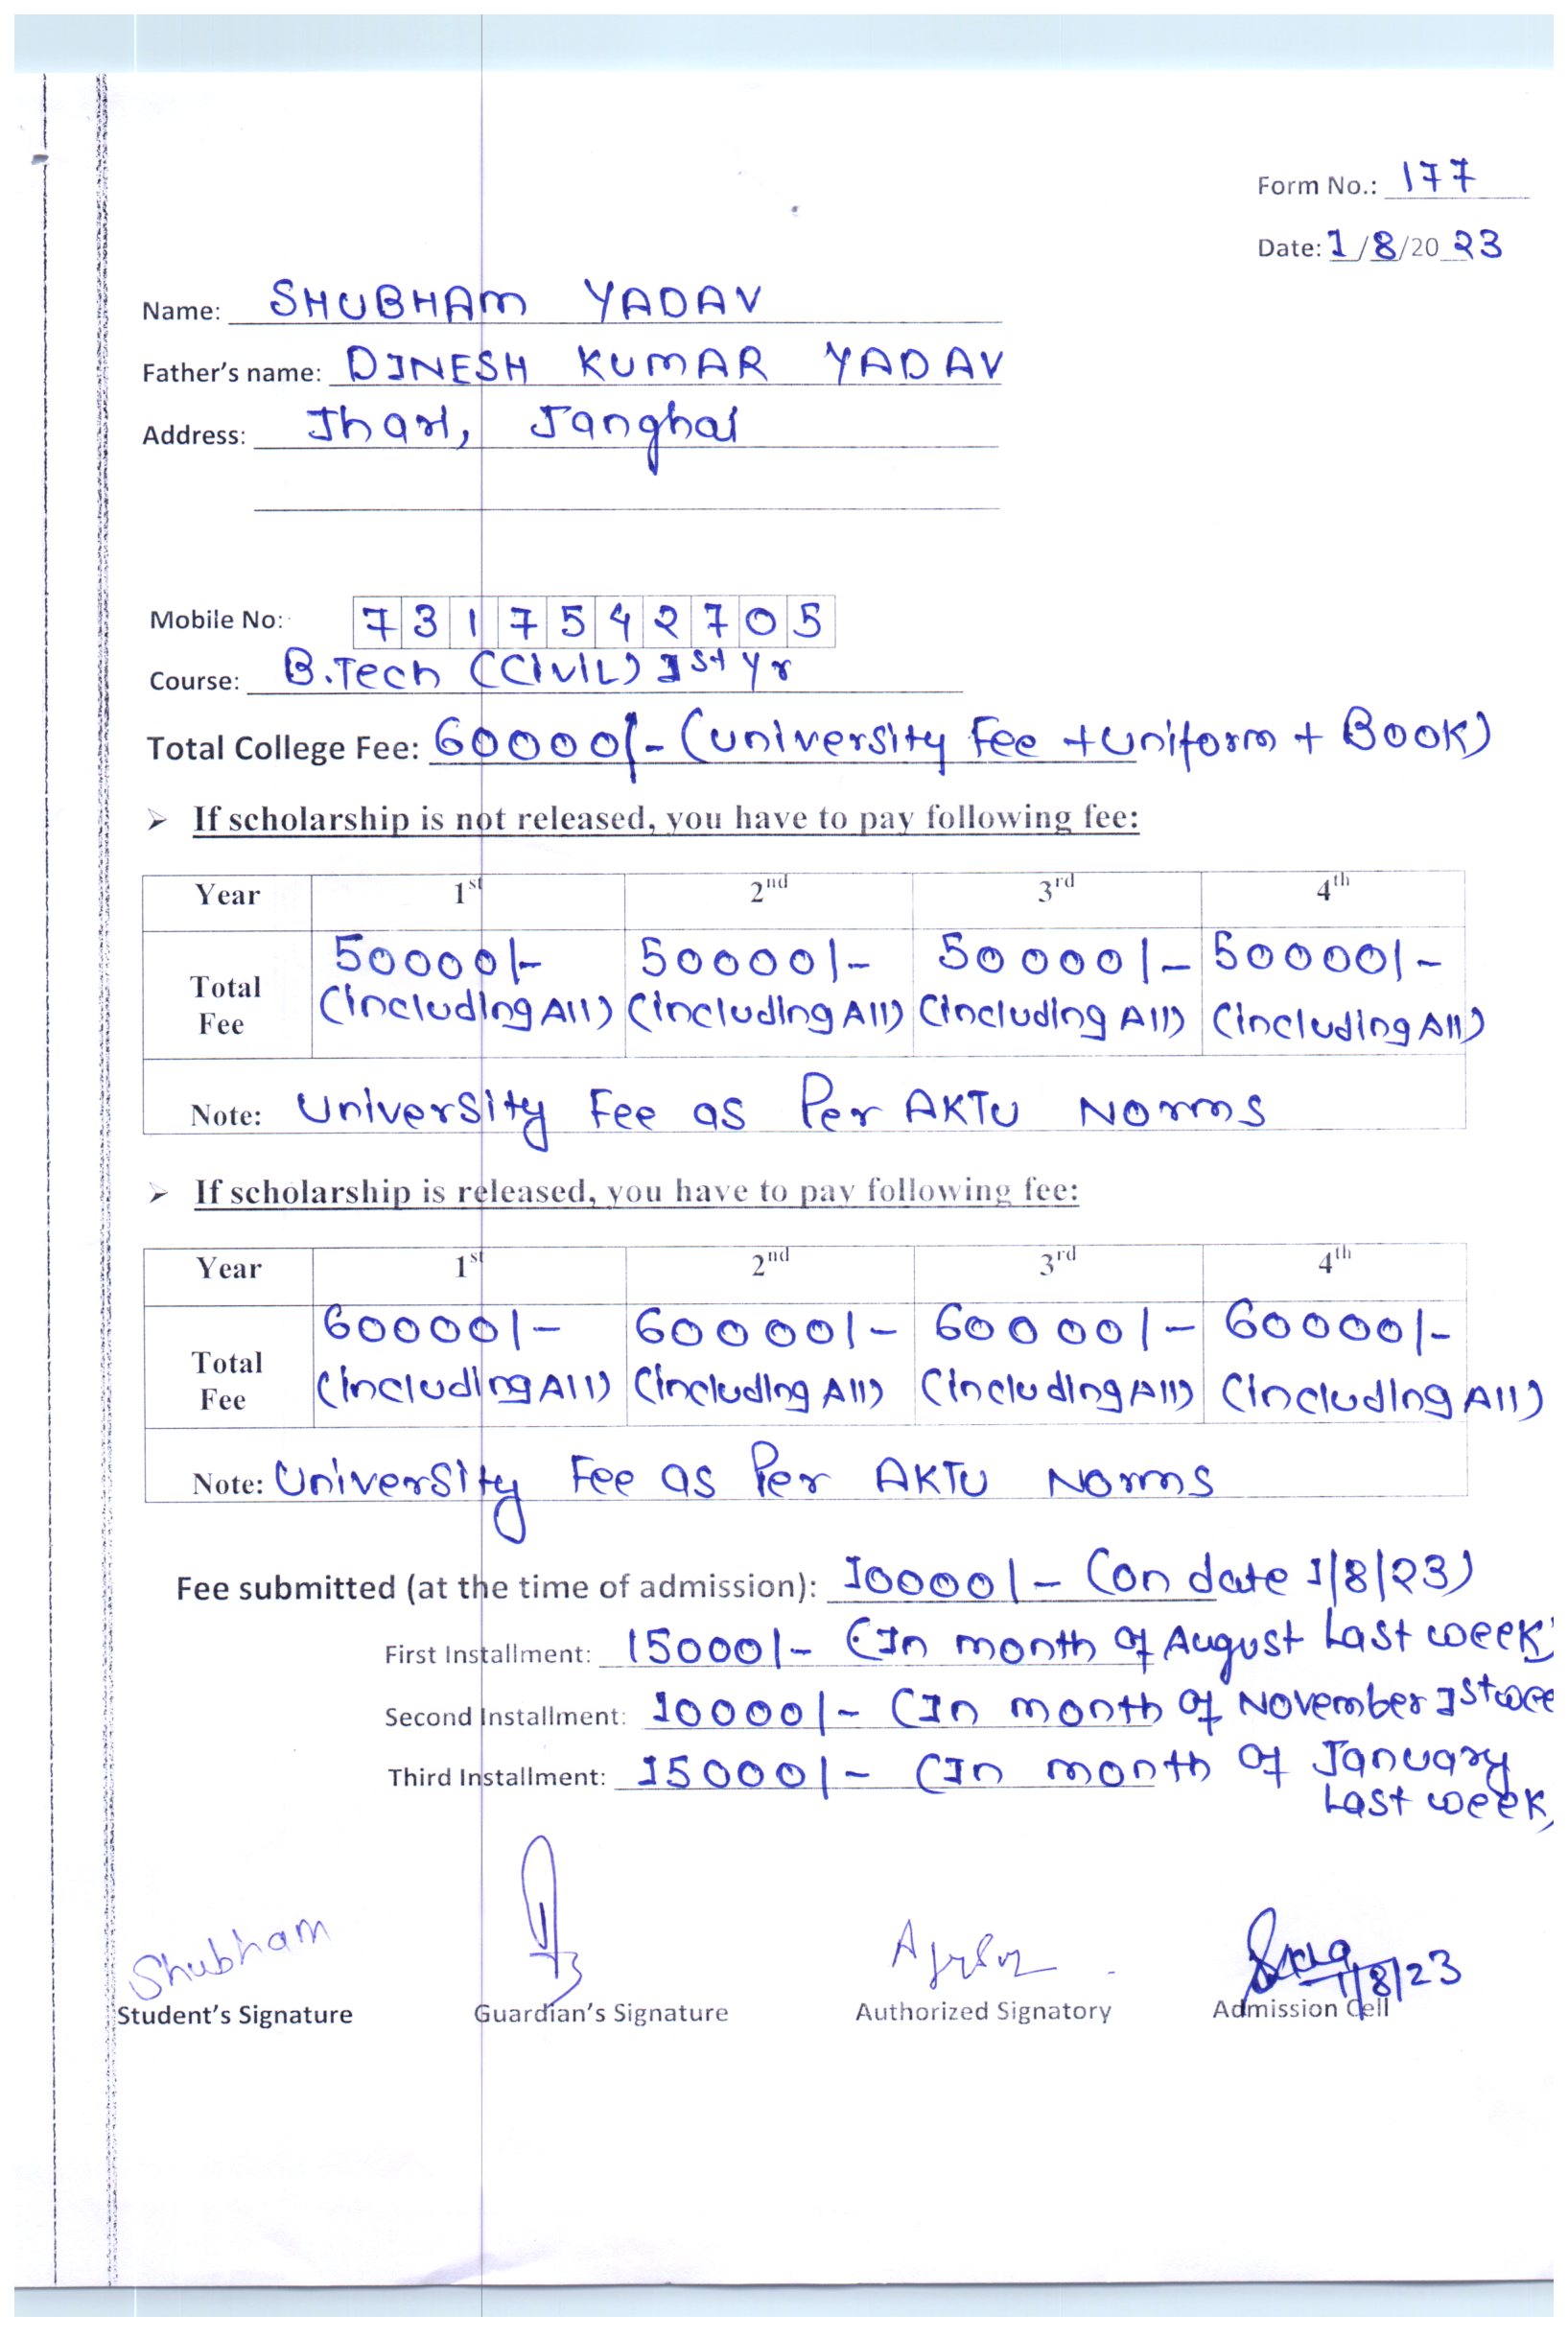 Form No.: 177
Date: 1/8/2023
Name: SHUBHAM YADAV
Father's name: DINESH KUMAR YADAV
Address: Jhari, Janghai
Mobile No: 7317542705
Course: B.Tech (CIVIL) 1st Yr
Total College Fee: 60000/- (University Fee + Uniform + Book)
➢ If scholarship is not released, you have to pay following fee:
Year 1st 2nd 3rd 4th
50000/- 50000/- 50000/- 50000/-
Total Fee (Including All) (Including All) (Including All) (Including All)
Note: University Fee as Per AKTU Norms
➢ If scholarship is released, you have to pay following fee:
Year 1st 2nd 3rd 4th
60000/- 60000/- 60000/- 60000/-
Total Fee (Including All) (Including All) (Including All) (Including All)
Note: University Fee as Per AKTU Norms
Fee submitted (at the time of admission): 10000/- (on date 1/8/23)
First Installment: 15000/- (In month of August Last week)
Second Installment: 10000/- (In month of November 1st wee
Third Installment: 15000/- (In month of January
Last week)
Shubham
1/8/23
Student's Signature Guardian's Signature Authorized Signatory Admission Cell